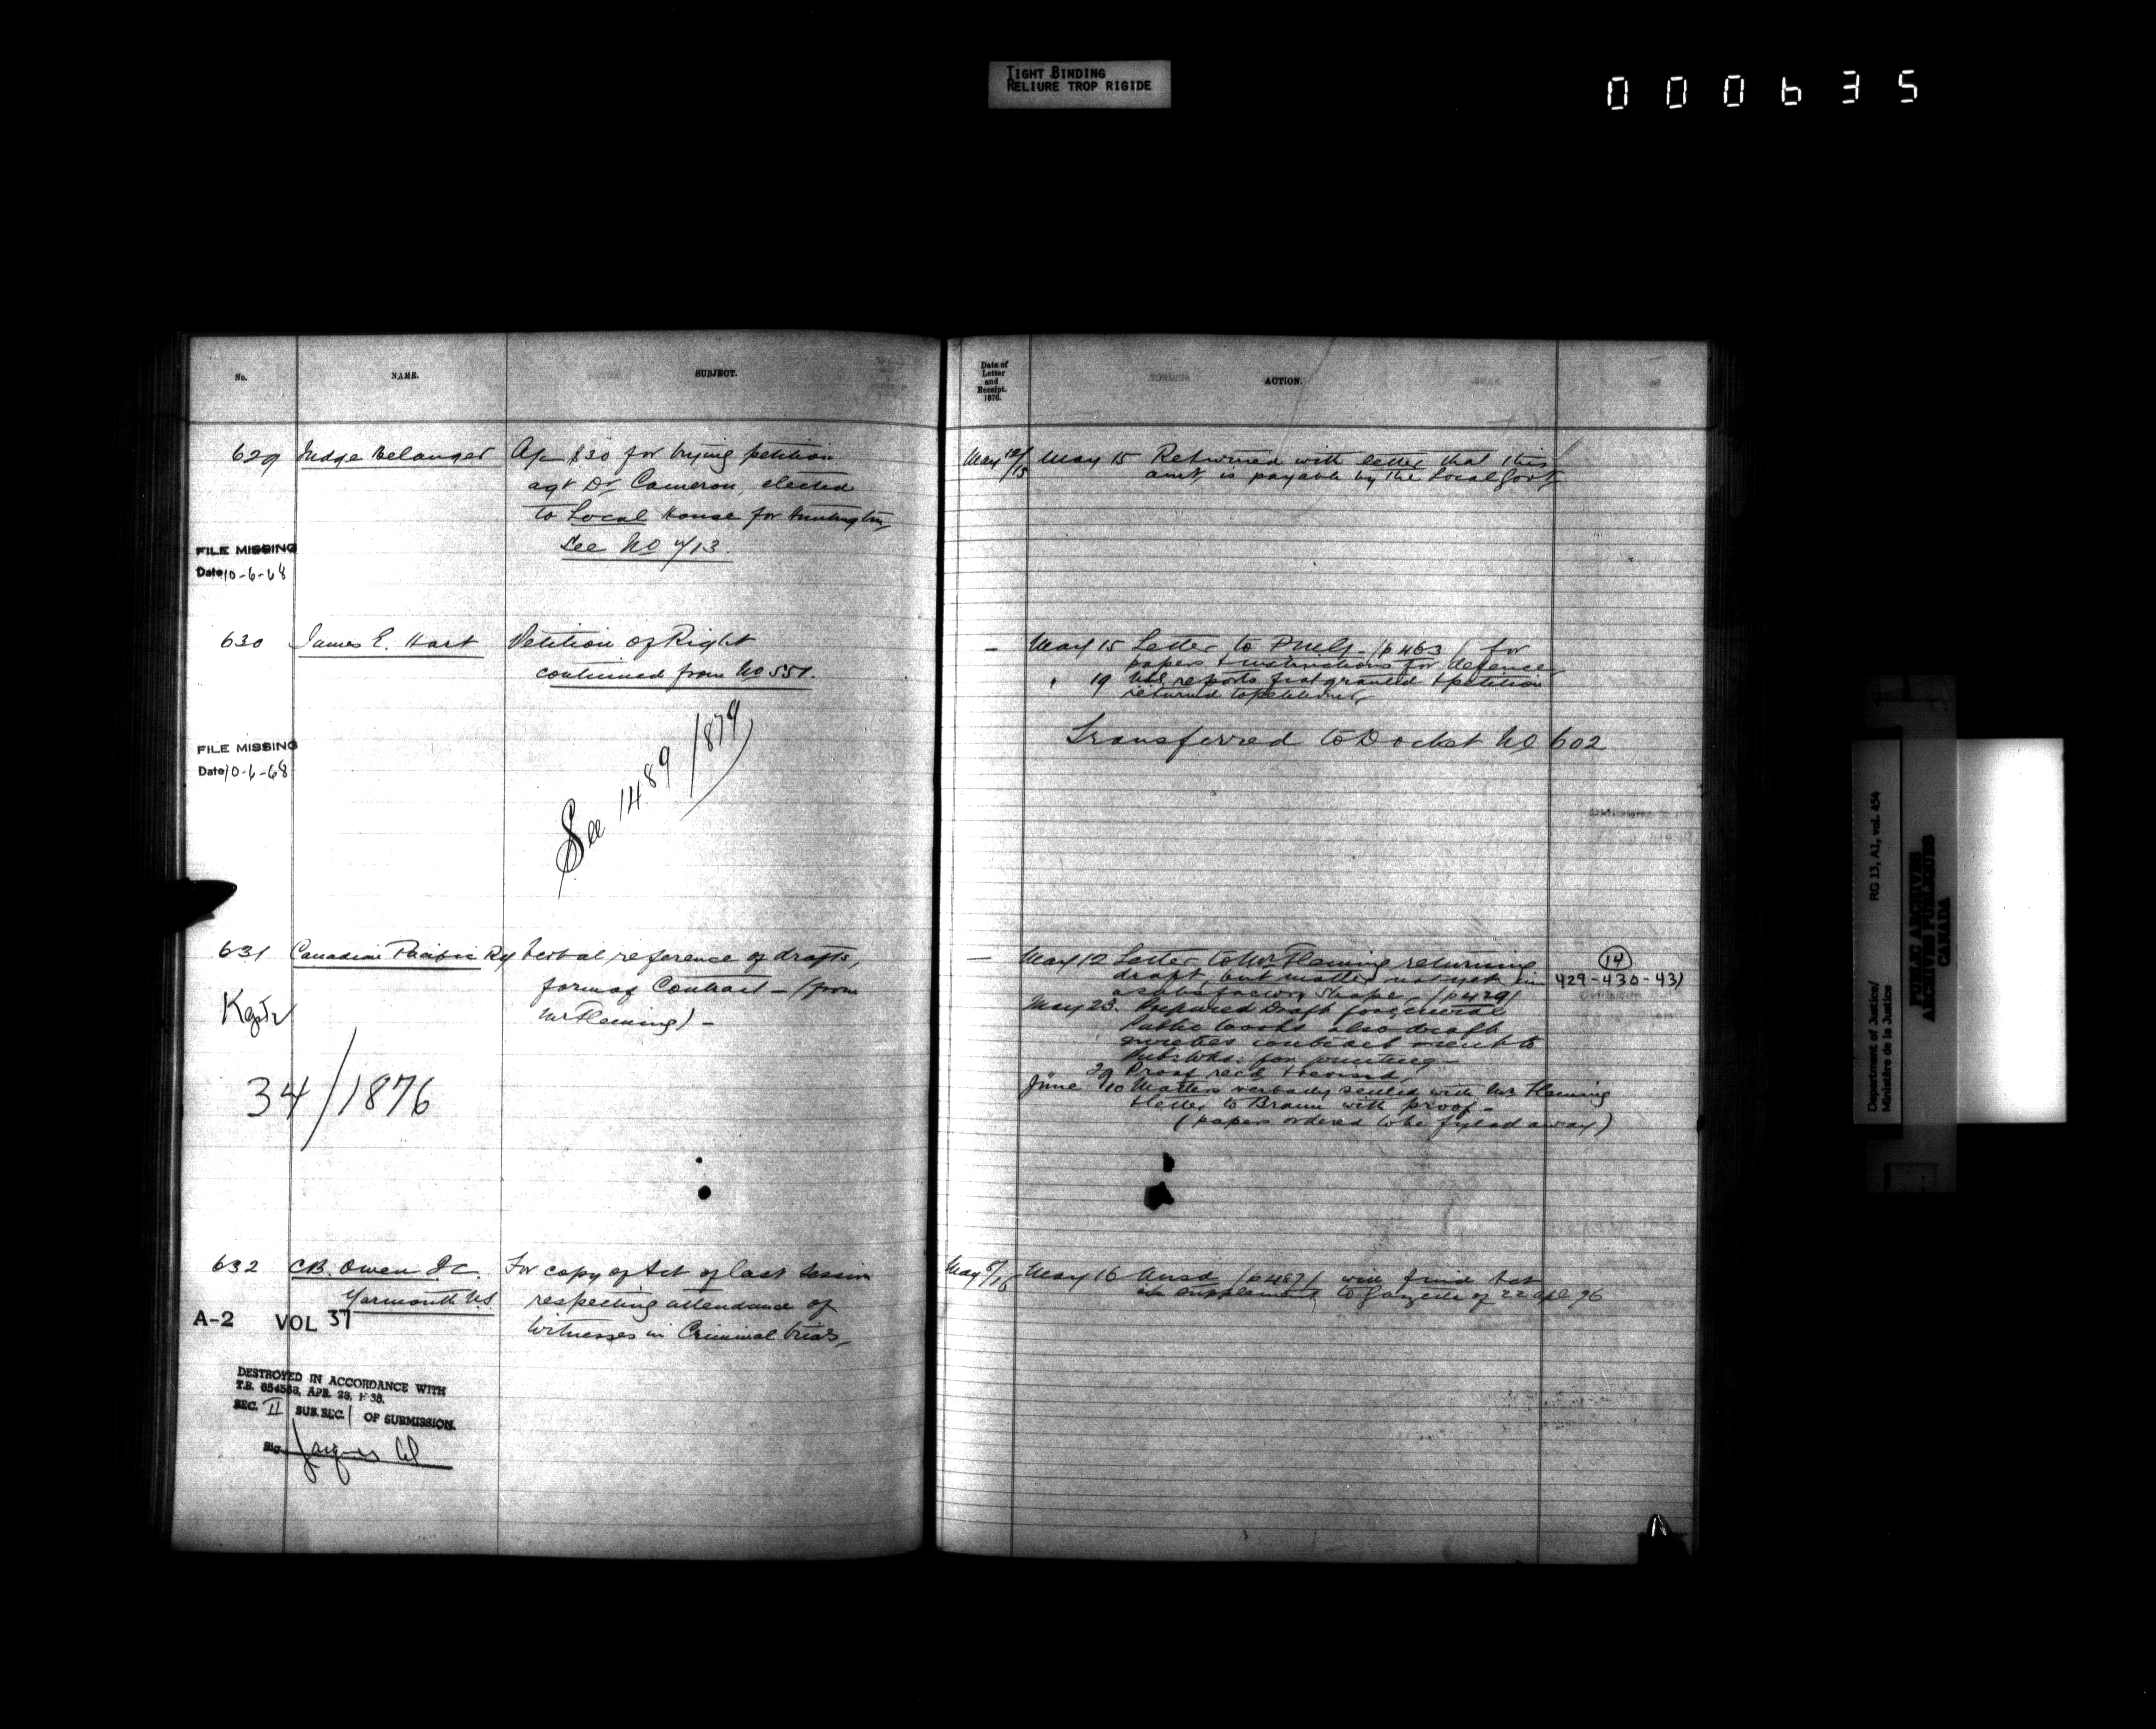 TIGHT BINDING
RELIURE TROP RIGIDE
000635
No.
NAME.
SUBJECT.
629 Judge Belanger A/c $30 for trying petition
agt Dr Cameron, elected
to Local House for Huntingdon
See No 413.
FILE MISSING
Date 10-6-68
630 James E. Hart Petition of Right
continued from No 551.
FILE MISSING
Date 10-6-68
See 1489/1879
631 Canadian Pacific Ry Verbal reference of drafts,
form of Contract - (from
Mr Fleming) -
34/1876
632 C.B. Owen Q.C. For copy of Act of last Session
Yarmouth N.S. respecting attendance of
Witnesses in Criminal trials
A-2 VOL 37
DESTROYED IN ACCORDANCE WITH
T.B. APR. 28,
SEC. II SUB. SEC. 1 OF SUBMISSION.
Sig.
Date of
Letter
and
Receipt.
1876.
ACTION.
May 12/15 May 15 Returned with letter that this
amt is payable by the Local Govt
- May 15 Letter to (p 463) for
papers & instructions for defence
" 19 reports fiat granted & petition
returned to petitioner
Transferred to Docket No 602
- May 12 Letter to Mr Fleming returning
draft, but matter not yet in
a satisfactory shape - (p 429)
14
429-430-431
May 23. Prepared Draft for general
Public Works also draft
contract sent to
for printing -
29 Proof recd & revised
June 10 Matter verbally settled with Mr Fleming
& letter to Braun with proof -
(papers ordered to be fyled away)
May 16 (p 487) will find Act
in supplement to Gazette of 22 Apl 76
RG 13, A1, vol. 454
Department of Justice/
Ministère de la Justice
PUBLIC ARCHIVES
ARCHIVES PUBLIQUES
CANADA